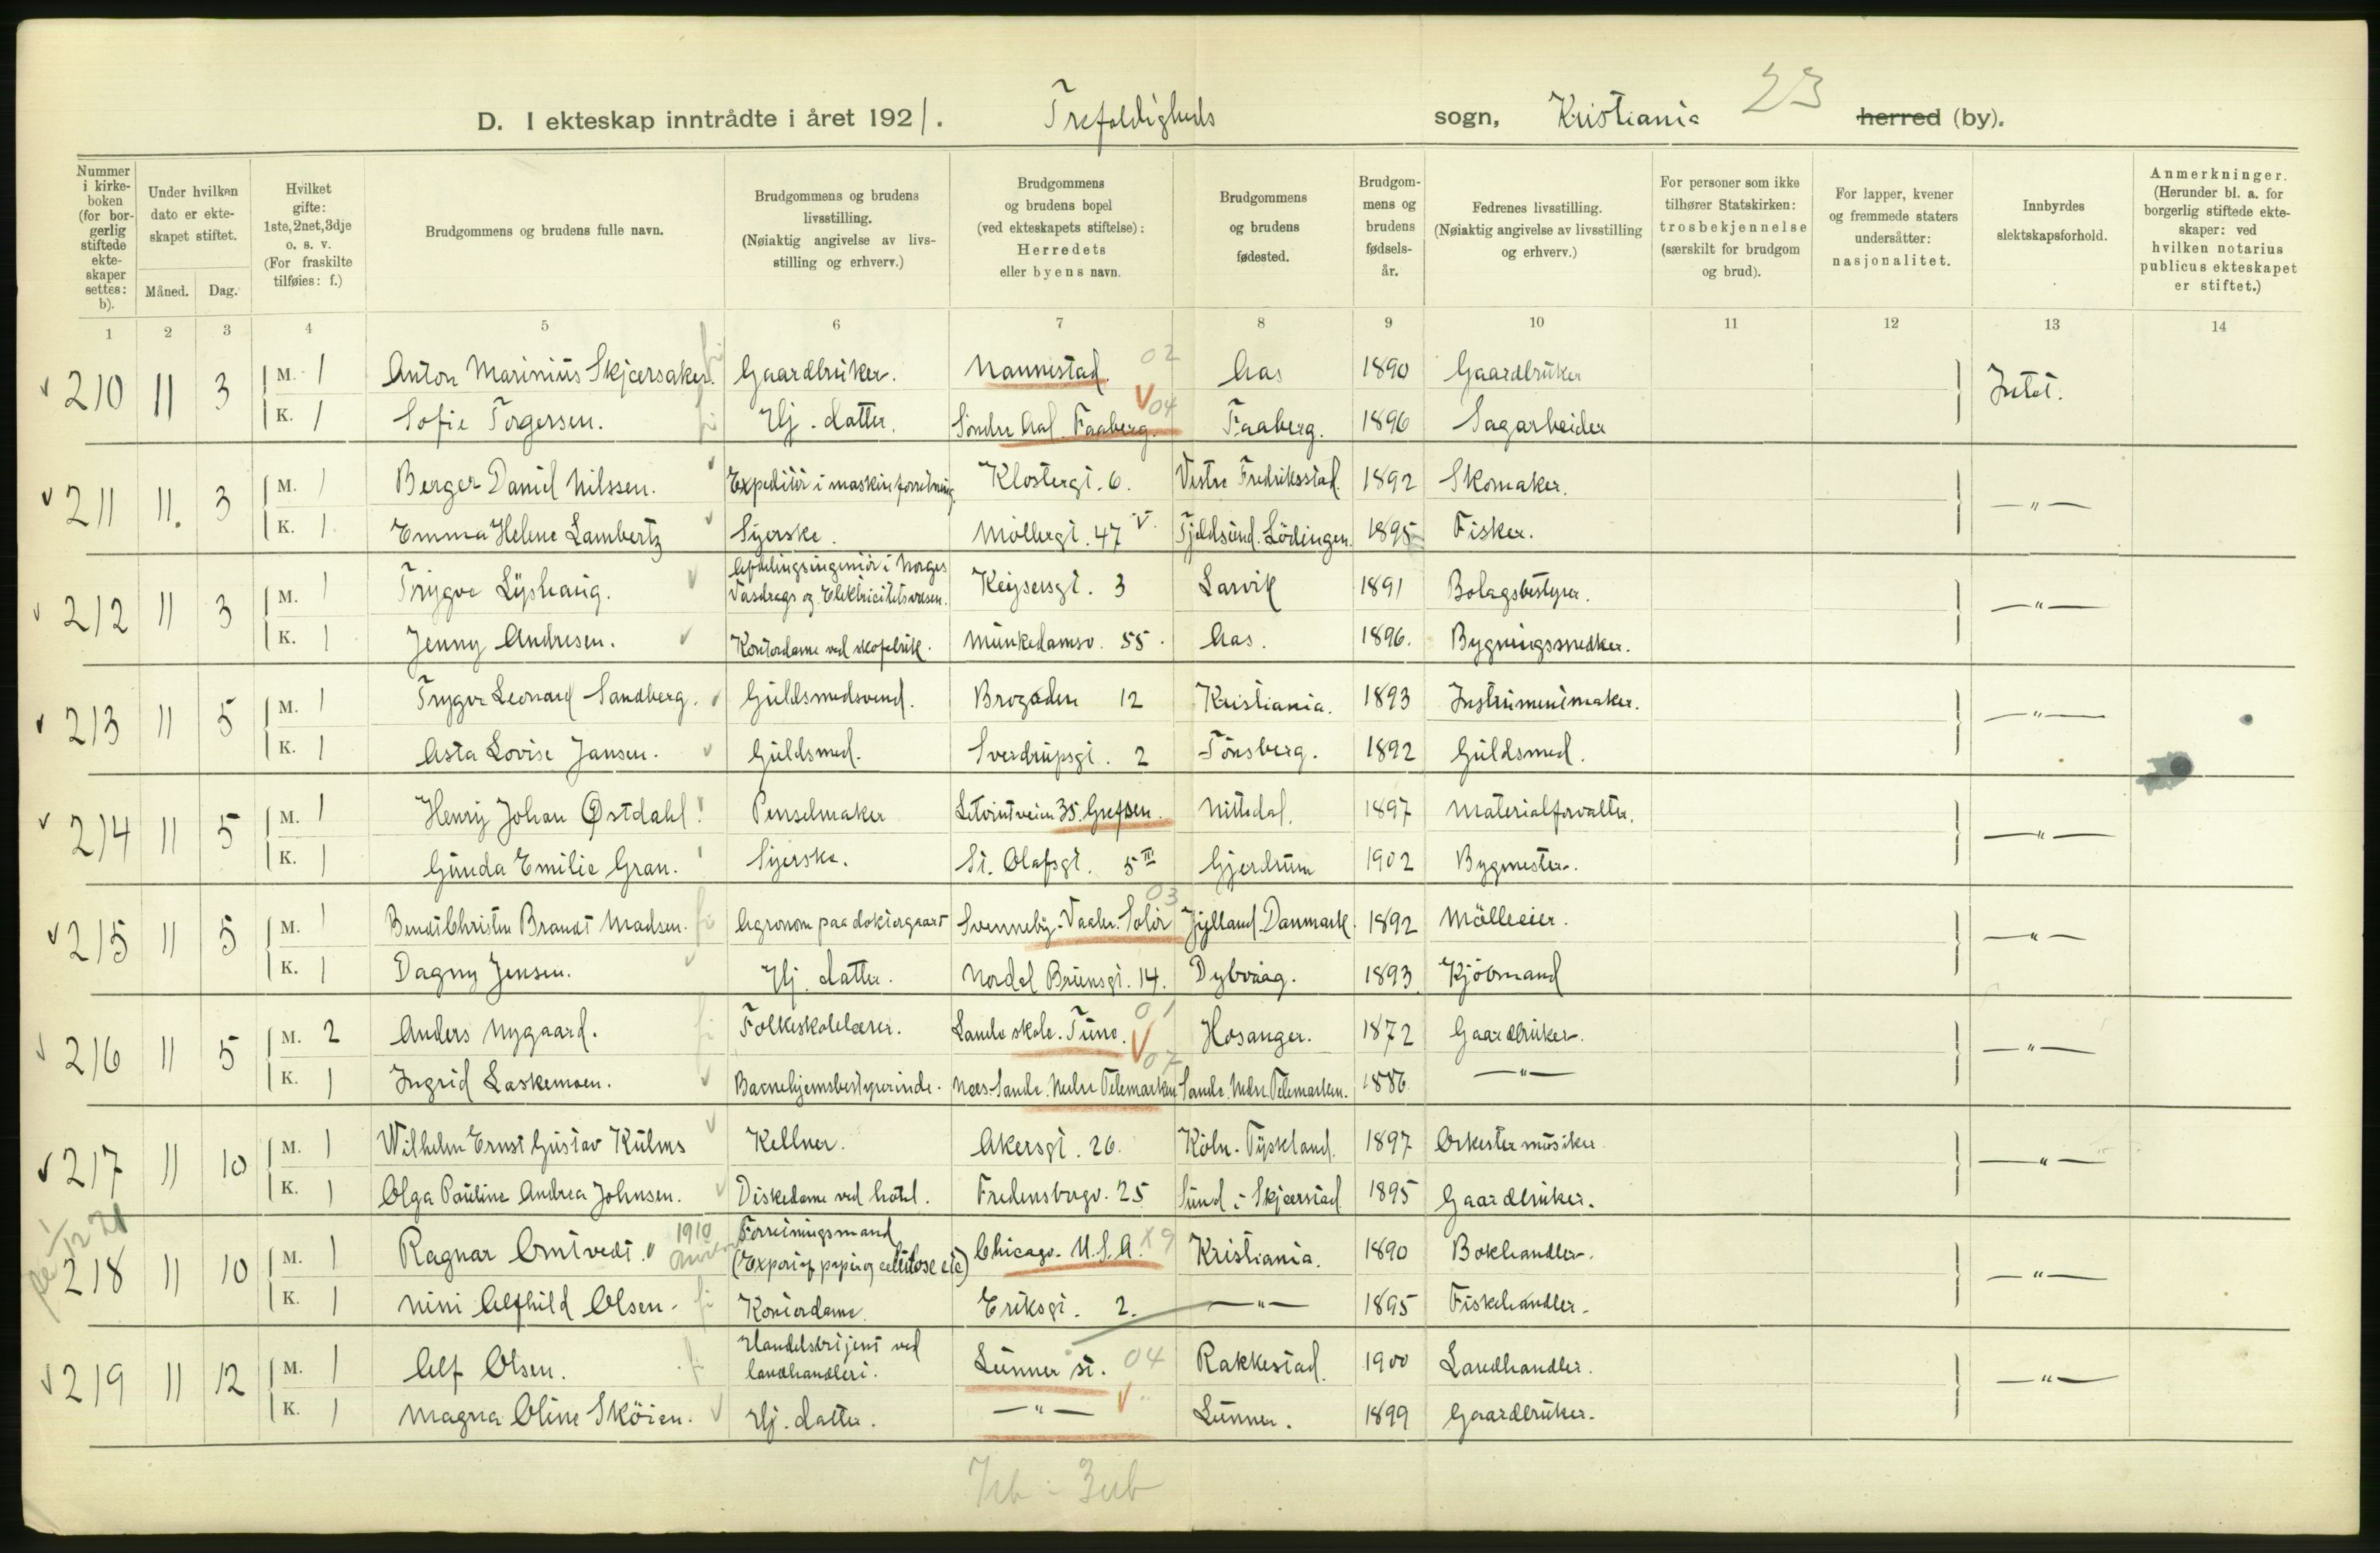 D. I ekteskap inntrådte i året 1921. Trefoldigheds sogn, Kristiania 23 herred (by).
Nummer i kirke-boken (for bor-gerlig stiftede ekte-skaper settes: b).
Under hvilken dato er ekte-skapet stiftet.
Måned. Dag.
Hvilket gifte: 1ste, 2net, 3dje o. s. v. (For fraskilte tilføies: f.)
Brudgommens og brudens fulle navn.
Brudgommens og brudens livsstilling. (Nøiaktig angivelse av livs-stilling og erhverv.)
Brudgommens og brudens bopel (ved ekteskapets stiftelse): Herredets eller byens navn.
Brudgommens og brudens fødested.
Brudgom-mens og brudens fødsels-år.
Fedrenes livsstilling. (Nøiaktig angivelse av livsstilling og erhverv.)
For personer som ikke tilhører Statskirken: trosbekjennelse (særskilt for brudgom og brud).
For lapper, kvener og fremmede staters undersåtter: nasjonalitet.
Innbyrdes slektskapsforhold.
Anmerkninger. (Herunder bl. a. for borgerlig stiftede ekte-skaper: ved hvilken notarius publicus ekteskapet er stiftet.)
1 2 3 4 5 6 7 8 9 10 11 12 13 14
210 11 3 M. 1 Anton Marinius Skjærsaker. Gaardbruker. Nannestad. 02 Aas 1890 Gaardbruker Intet.
K. 1 Sofie Torgersen. Hj. datter. Söndre Aal. Faaberg. 04 Faaberg. 1896 Sagarbeider
211 11. 3 M. 1 Berger Daniel Nilssen. Expeditör i maskinforretning. Klostergt. 6. Vestre Fredriksstad. 1892 Skomaker. —"—
K. 1. Emma Helene Lambertz Syerske. Möllergt. 47 V. Tjeldsund. Lödingen. 1895 Fisker.
212 11 3 M. 1 Trygve Lyshaug. Afdelingsingeniör i Norges Vasdrags og Elektricitetsvæsen. Keysersgt. 3 Larvik 1891 Bolagsbestyrer. —"—
K. 1 Jenny Andresen. Kontordame ved skofabrik. Munkedamsv. 55. Aas. 1896. Bygningssnedker.
213 11 5 M. 1 Trygve Leonard Sandberg. Guldsmedsvend. Brogaden 12 Kristiania. 1893 Instrumentmaker. —"—
K. 1 Asta Lovise Jansen. Guldsmed. Sverdrupsgt. 2 Tönsberg. 1892 Guldsmed.
214 11 5 M. 1 Henry Johan Østdahl Penselmaker 35. Grefsen. Nittedal. 1897 Materialforvalter. —"—
K. 1 Gunda Emilie Gran. Syerske. St. Olafsgt. 5 III Gjerdrum 1902 Bygmester.
215 11 5 M. 1 Bendt Christen Brandt Madsen. Agronom paa doktorgaard Svenneby-Vaaler. Solör 03 Jylland. Danmark. 1892 Mölleeier. —"—
K. 1 Dagny Jensen. Hj. datter. Nordal Brunsgt. 14. Dybvaag. 1893 Kjöbmand
216 11 5 M. 2 Anders Nygaard. Folkeskolelærer. Lande skole. Tune. 01 Hosanger. 1872 Gaardbruker. —"—
K. 1 Ingrid Laskemoen. Barnehjemsbestyrerinde. Næs-Sande. Nedre Telemarken 07 Sande. Nedre Telemarken. 1886 —"—
217 11 10 M. 1 Wilhelm Ernst Gustav Kulms Kellner. Akersgt. 26. Köln-Tyskland. 1897 Orkestermusiker —"—
K. 1 Olga Pauline Andrea Johnsen. Diskedame ved hotel. Fredensborgv. 25 Sund i Skjærstad 1895 Gaardbruker.
218 11 10 M. 1 Ragnar Omtvedt. 1910 Forretningsmand (Export af papir og cellulose etc) Chicago. U.S.A. X9 Kristiania. 1890 Bokhandler. —"—
K. 1 Nini Alfhild Olsen. Kontordame. Eriksgt. 2. —"— 1895 Fiskehandler.
219 11 12 M. 1 Alf Olsen. Handelsbetjent ved landhandleri. Lunner st. 04 Rakkestad. 1900 Landhandler. —"—
K. 1 Magna Oline Sköien. Hj. datter. —"— Lunner. 1899 Gaardbruker.